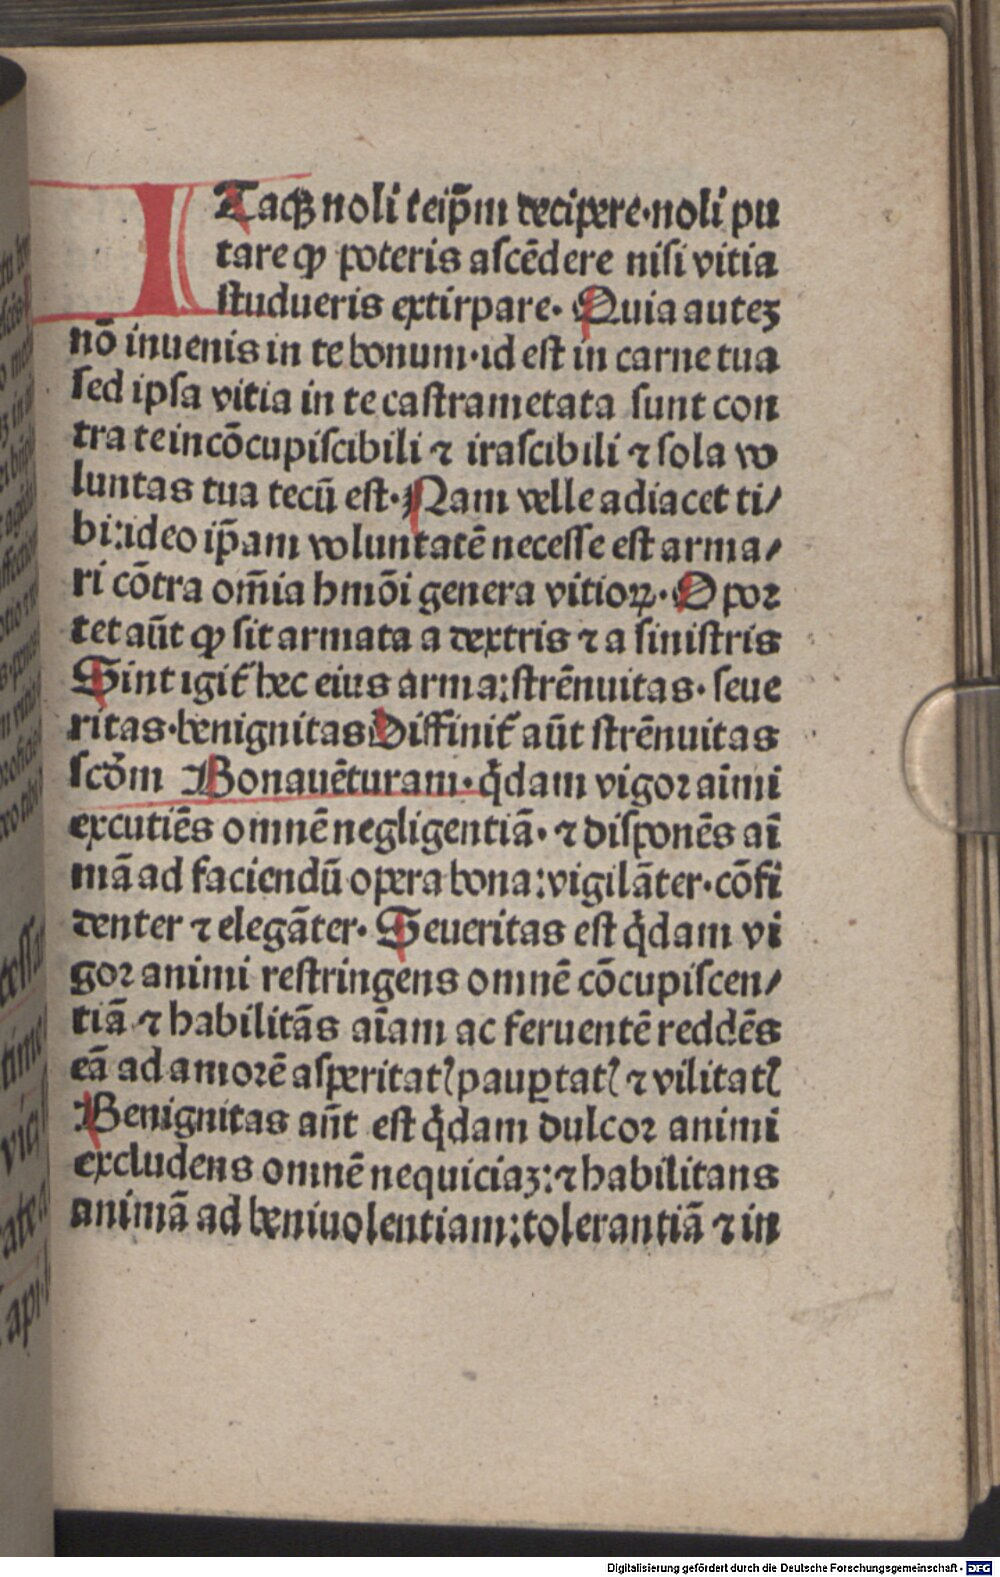 ITaqꝫ noli teip̄m decipere·noli pu
tare ꝙ poteris ascēdere nisi vitia
studueris extirpare· Quia auteꝫ
nō inuenis in te bonum·id est in carne tua
sed ipsa vitia in te castrametata sunt con
tra te in cōcupiscibili ⁊ irascibili ⁊ sola vo
luntas tua tecū est· Nam velle adiacet ti/
bi:ideo ip̄am voluntatē necesse est arma/
ri cōtra om̄ia hmōi genera vitioꝝ· Opor
tet aūt ꝙ sit armata a dextris ⁊ a sinistris
Sint igit̄ hec eius arma:strēnuitas· seue
ritas·benignitas Diffinit̄ aūt strēnuitas
scōm Bonauēturam· q̄dam vigor aīmi
excutiēs omnē negligentiā· ⁊ disponēs aī
mā ad faciendū opera bona:vigilāter·cōfi
denter ⁊ elegāter· Seueritas est q̄dam vi
gor animi restringens omnē cōcupiscen/
tiā ⁊ habilitās aīam ac feruentē reddēs
eā ad amorē asperitatꝭ paup̱tatꝭ ⁊ vilitatꝭ
Benignitas aūt est q̄dam dulcor animi
excludens omnē nequiciaꝫ:⁊ habilitans
animā ad beniuolentiam:tolerantiā ⁊ in
Digitalisierung gefördert durch die Deutsche Forschungsgemeinschaft - DFG